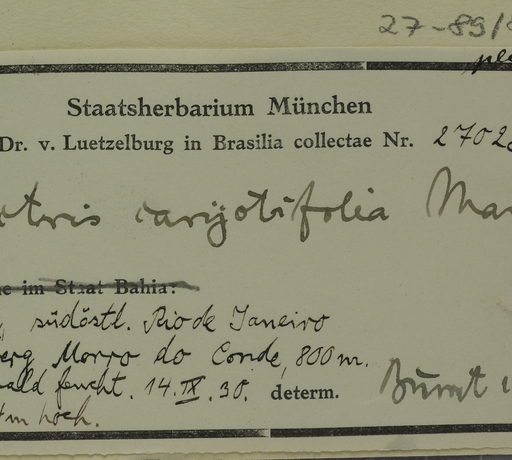 27-89/
Staatsherbarium München
Dr. v. Luetzelburg in Brasilia collectae Nr. 2702
caryotifolia Mar
im Staat Bahia:
südöstl. Rio de Janeiro
Morro do Conde, 800 m.
feucht. 14.IX.30. determ. Burret
m hoch.